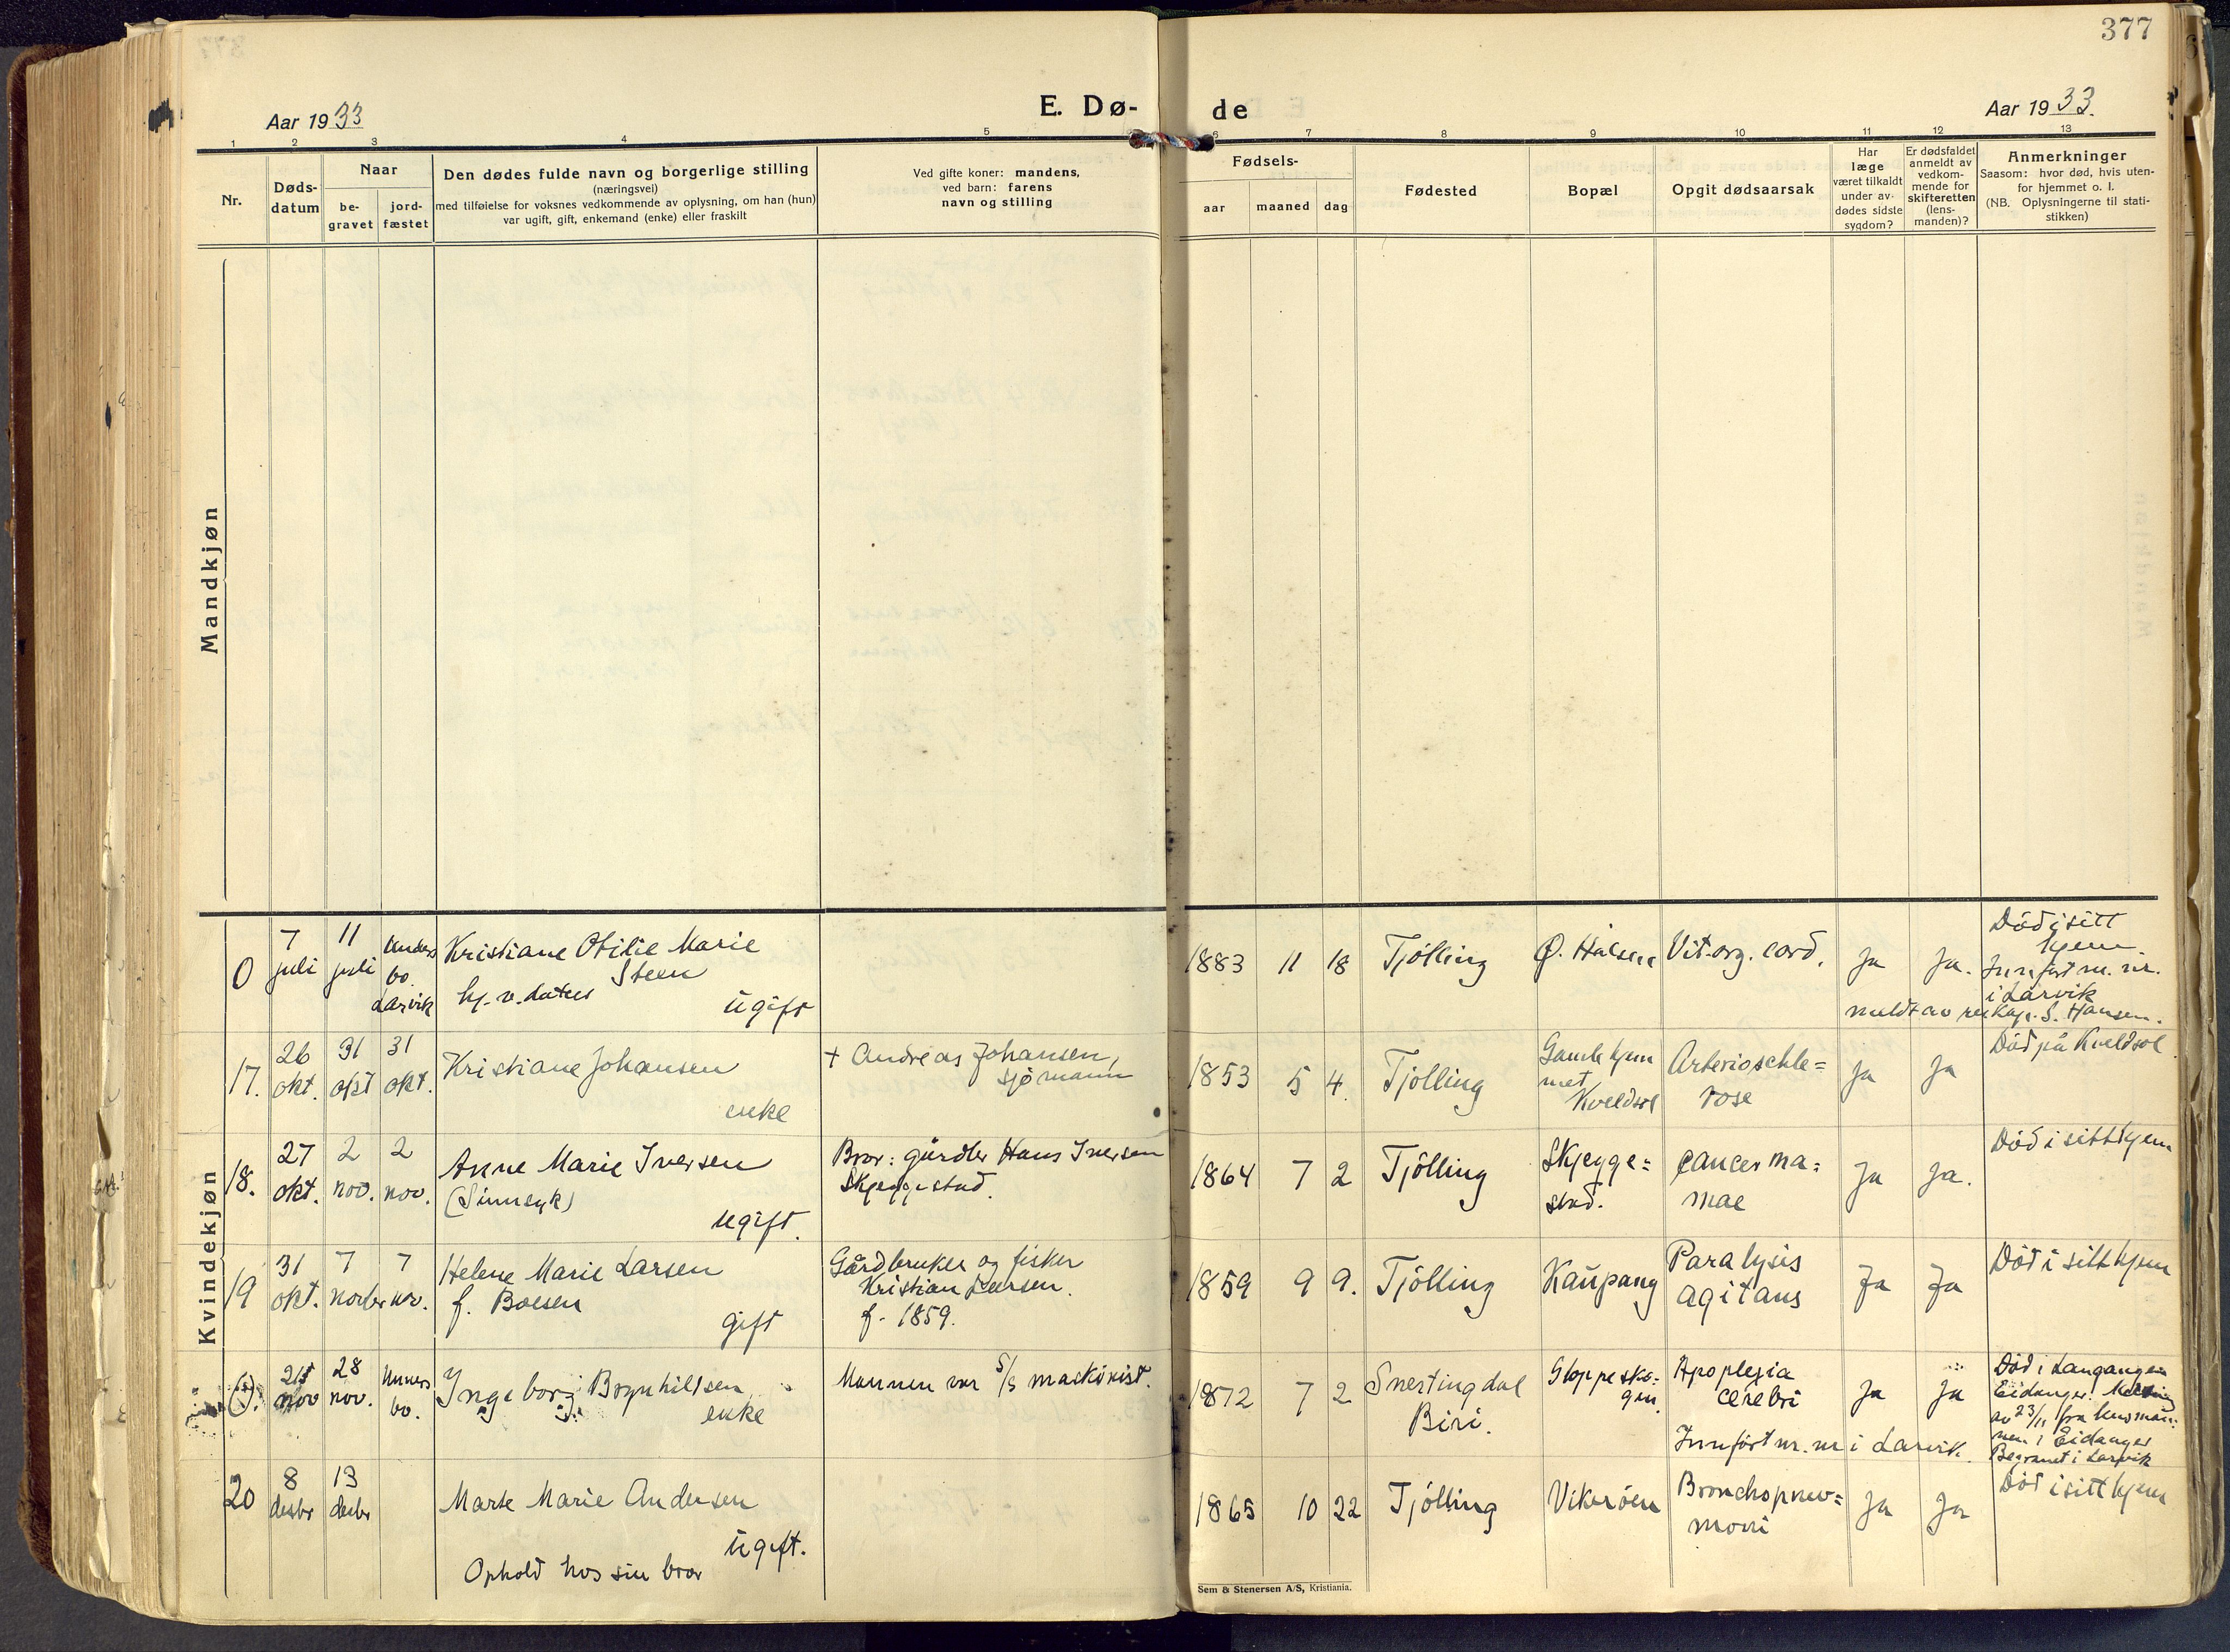 377
Aar 1933
E. Dø-
de
Aar 1933.
1 2 3 4 5 6 7 8 9 10 11 12 13
Nr.
Døds-
datum
Naar
be-
gravet
jord-
fæstet
Den dødes fulde navn og borgerlige stilling
(næringsvei)
med tilføielse for voksnes vedkommende av oplysning, om han (hun)
var ugift, gift, enkemand (enke) eller fraskilt
Ved gifte koner: mandens,
ved barn: farens
navn og stilling
Fødsels-
aar maaned dag
Fødested
Bopæl
Opgit dødsaarsak
Har
læge
været tilkaldt
under av-
dødes sidste
sygdom?
Er dødsfaldet
anmeldt av
vedkom-
mende for
skifteretten
(lens-
manden)?
Anmerkninger
Saasom: hvor død, hvis uten-
for hjemmet o. l.
(NB. Oplysningerne til stati-
stikken)
Mandkjøn
Kvindekjøn
0
7
juli
11
juli
bo.
Larvik
Kristiane Otilie Marie
Steen
ugift
1883 11 18
Tjölling
Ø. Halsen
Vit. org. cord.
Ja
Ja.
Död i sitt
hjem.
i Larvik
S. Hansen.
17.
26
okt.
31
okt
31
okt.
Kristiane Johansen
enke
+ Andreas Johansen,
sjömann
1853 5 4.
Tjölling
Gamlehjem
met
Kveldsol
Arterioschle=
rose
Ja
Ja
Död på Kveldsol
18.
27
okt.
2
nov.
2
nov.
Anne Marie Iversen
(Sinnsyk)
ugift.
Bror: gårdbr Hans Iversen
Skjeggestad.
1864 7 2
Tjölling
Skjegge=
stad.
Cancer ma=
mae
Ja
Ja.
Död i sitt hjem
19
31
okt.
7
novbr
7
nov.
Helene Marie Larsen
f. Boesen
gift
Gårdbruker og fisker
Kristian Larsen.
f. 1859.
1859 9 9.
Tjölling
Kaupang
Paralysis
agitans
Ja
Ja
Död i sitt hjem
21
nov
28
nov.
bo.
Ingeborg Brynhildsen
enke
Mannen var s/s maskinist.
1872 7 2
Snertingdal
Biri.
Gloppesko=
gen.
Apoplexia
cerebri
Ja
Ja
Innfört m. nr i Larvik.
Död i Langangen
Eidanger. Melding
av 23/11 fra lensman=
nen i Eidanger
Begravet i Larvik
20
8
desbr
13
desbr
Marte Marie Andersen
ugift.
Ophold hos sin bror
1865 10 22
Tjölling
Vikeröen
Bronchopneu=
moni
Ja
Ja
Död i sitt hjem
Sem & Stenersen A/S, Kristiania.